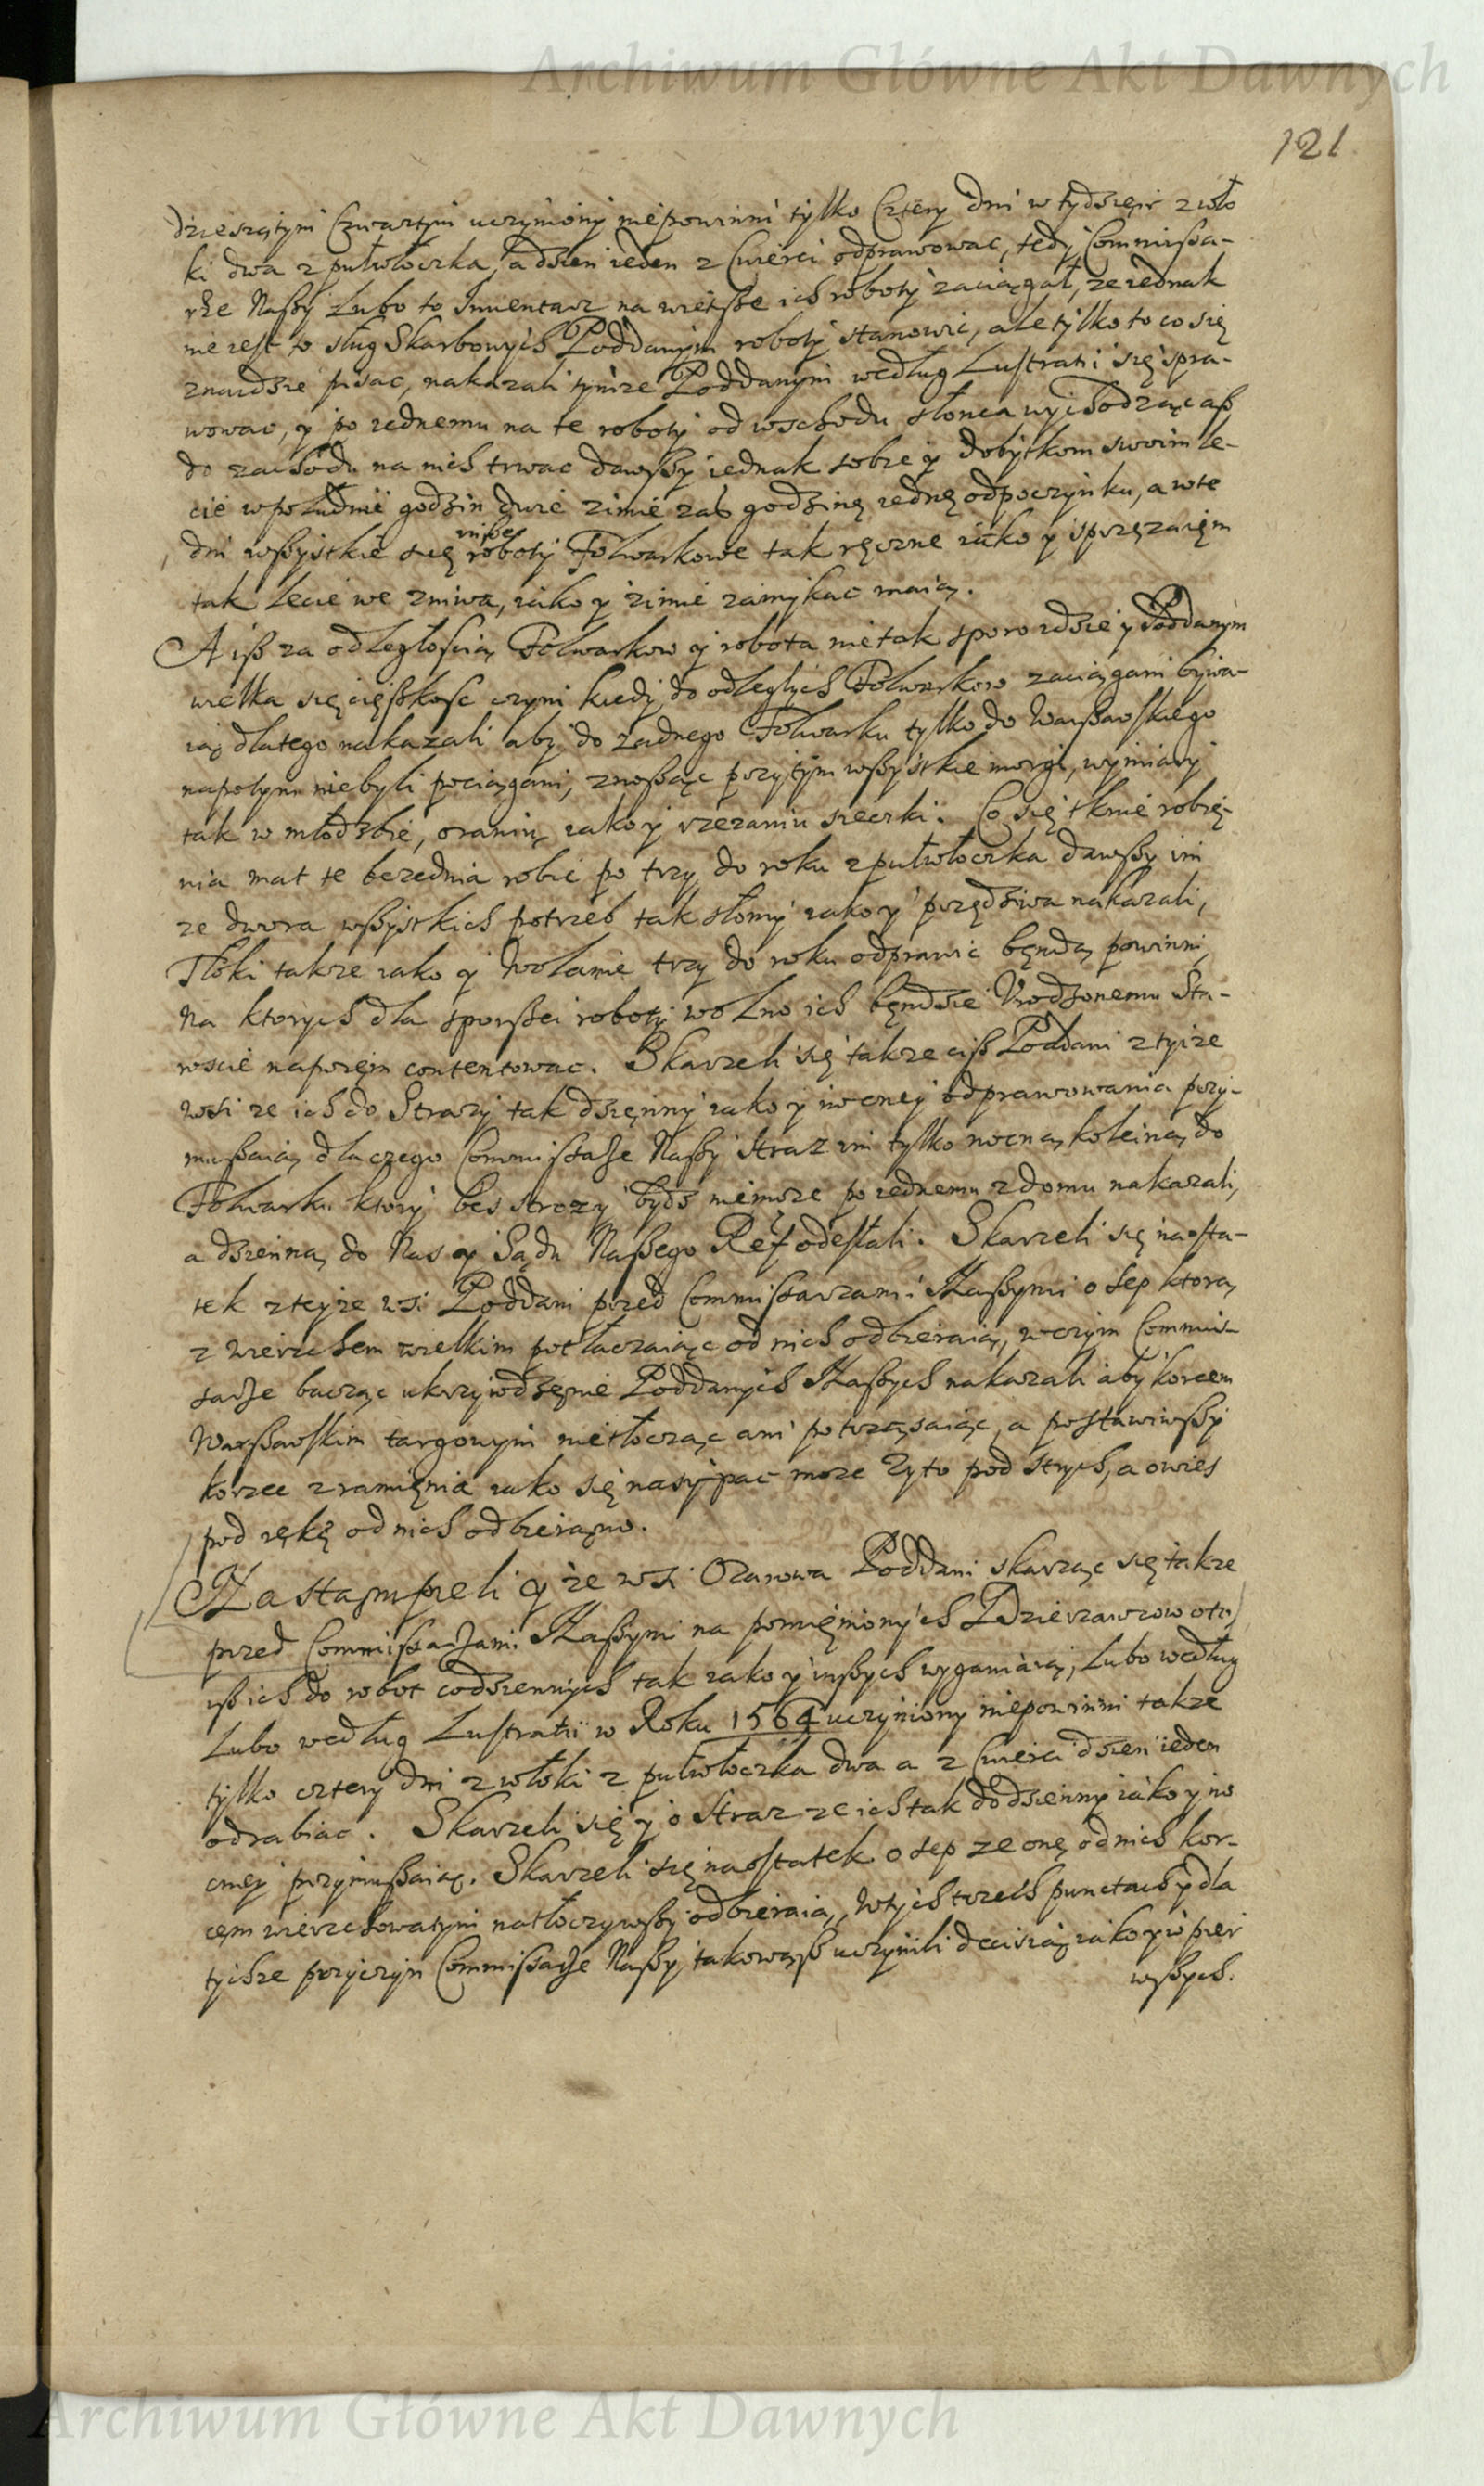 Archiwum Główne Akt Dawnych
121
dzieszątym Czwartym uczyniony niepowinni tylko Cztery dni w tydzięń z wło
ki dwa z pułwłoczka, a dzien ieden z Cwierci odprawowac, tedy Commissa-
rze Naszy Lubo to Inwentarz na wietsze ich roboty zaciągał, ze iednak
nie iest to sług Skarbowych Poddanym roboty stanowic, ale tylko to co się
znaidzie pisac, nakazali tymze Poddanym według Lustratii się spra-
wowac, y po iednemu na te roboty od wschodu słonca wychodząc asz
do zachodu na nich trwac dawszy iednak sobie y dobytkom swoim le-
cie wpołudnie godzin dwie zimie zas godzinę iednę odpoczynku, a wte
dni wszystkie się wsze roboty Folwarkowe tak ręczne iako y sprzęzaięm
tak lecie we zniwa, iako y zimie zamykac maią.
A isz za odległoscią Folwarkow y robota nie tak sporo idzie y Poddanym
wielka się cięszkosc czyni kiedy do odległych Folwarkow zaciągani bywa-
ią dlatego nakazali aby do zadnego Folwarku tylko do Warszawskiego
napotym niebyli pociągani, znosząc przytym wszystkie morgi, wymiary
tak w młodzbie, oraniu, iako y rzezaniu sieczki. Co się tknie robię-
nia mat te bezednia robic po trzy do roku z pułwłoczka dawszy im
ze dwora wszystkich potrzeb tak słomy iako y przędziwa nakazali,
Tłoki takze iako y Wolanie trzy do roku odprawic będą powinni,
Na ktorych dla sporszei roboty wolno ich będzie Urodzonemu Sta-
roscie napoięm contentowac. Skarzeli się takze cisz Poddani z tyize
wsi ze ich do Strazy tak dzięnny iako y nocney odprawowania przy-
muszaią dla czego Commissarze Naszy straz im tylko nocną koleiną do
Folwarku ktory bes strozy bydz niemoze po iednemu z domu nakazali,
a dzienną do Nas y Sądu Naszego Ref odesłali. Skarzeli się naosta-
tek z teyze wsi Poddani przed Commissarzami Naszymi o sep ktorą
z wierzchem wielkim potłaczaiąc od nich odbieraią, w czym Commis-
sarze bacząc ukrzywdzęnie Poddanych Naszych nakazali aby korcem
Warszawskim targowym nietłocząc ani potrząsaiąc, a postawiwszy
korzec z ramięnia iako się nasypac moze Zyto pod strych, a owies
pod rękę od nich odbierano.
Nastąmpieli y ze wsi Ozarowa Poddani skarząc się takze
przed Commissarzami Naszymi na pomięnionych Dzierzawcow oto
isz ich do robot codziennych tak iako y inszych wyganiaią, Lubo według
Lubo według Lustratii w Roku 1564 uczyniony niepowinni takze
tylko cztery dni z włoki z pułwłoczka dwa a z Cwierci dzien ieden
odrabiac. Skarzeli się y o Straz ze ich tak do dzienny iako y no
cney przymuszaią. Skarzeli się naostatek o sep ze onę od nich kor-
cęm wierzchowatym natłoczywszy odbieraią, W tych trzech punctach y dla
tychze przyczyn Commissarze Naszy takowąsz uczynili decisią iako y w pier
wszych.
Archiwum Główne Akt Dawnych